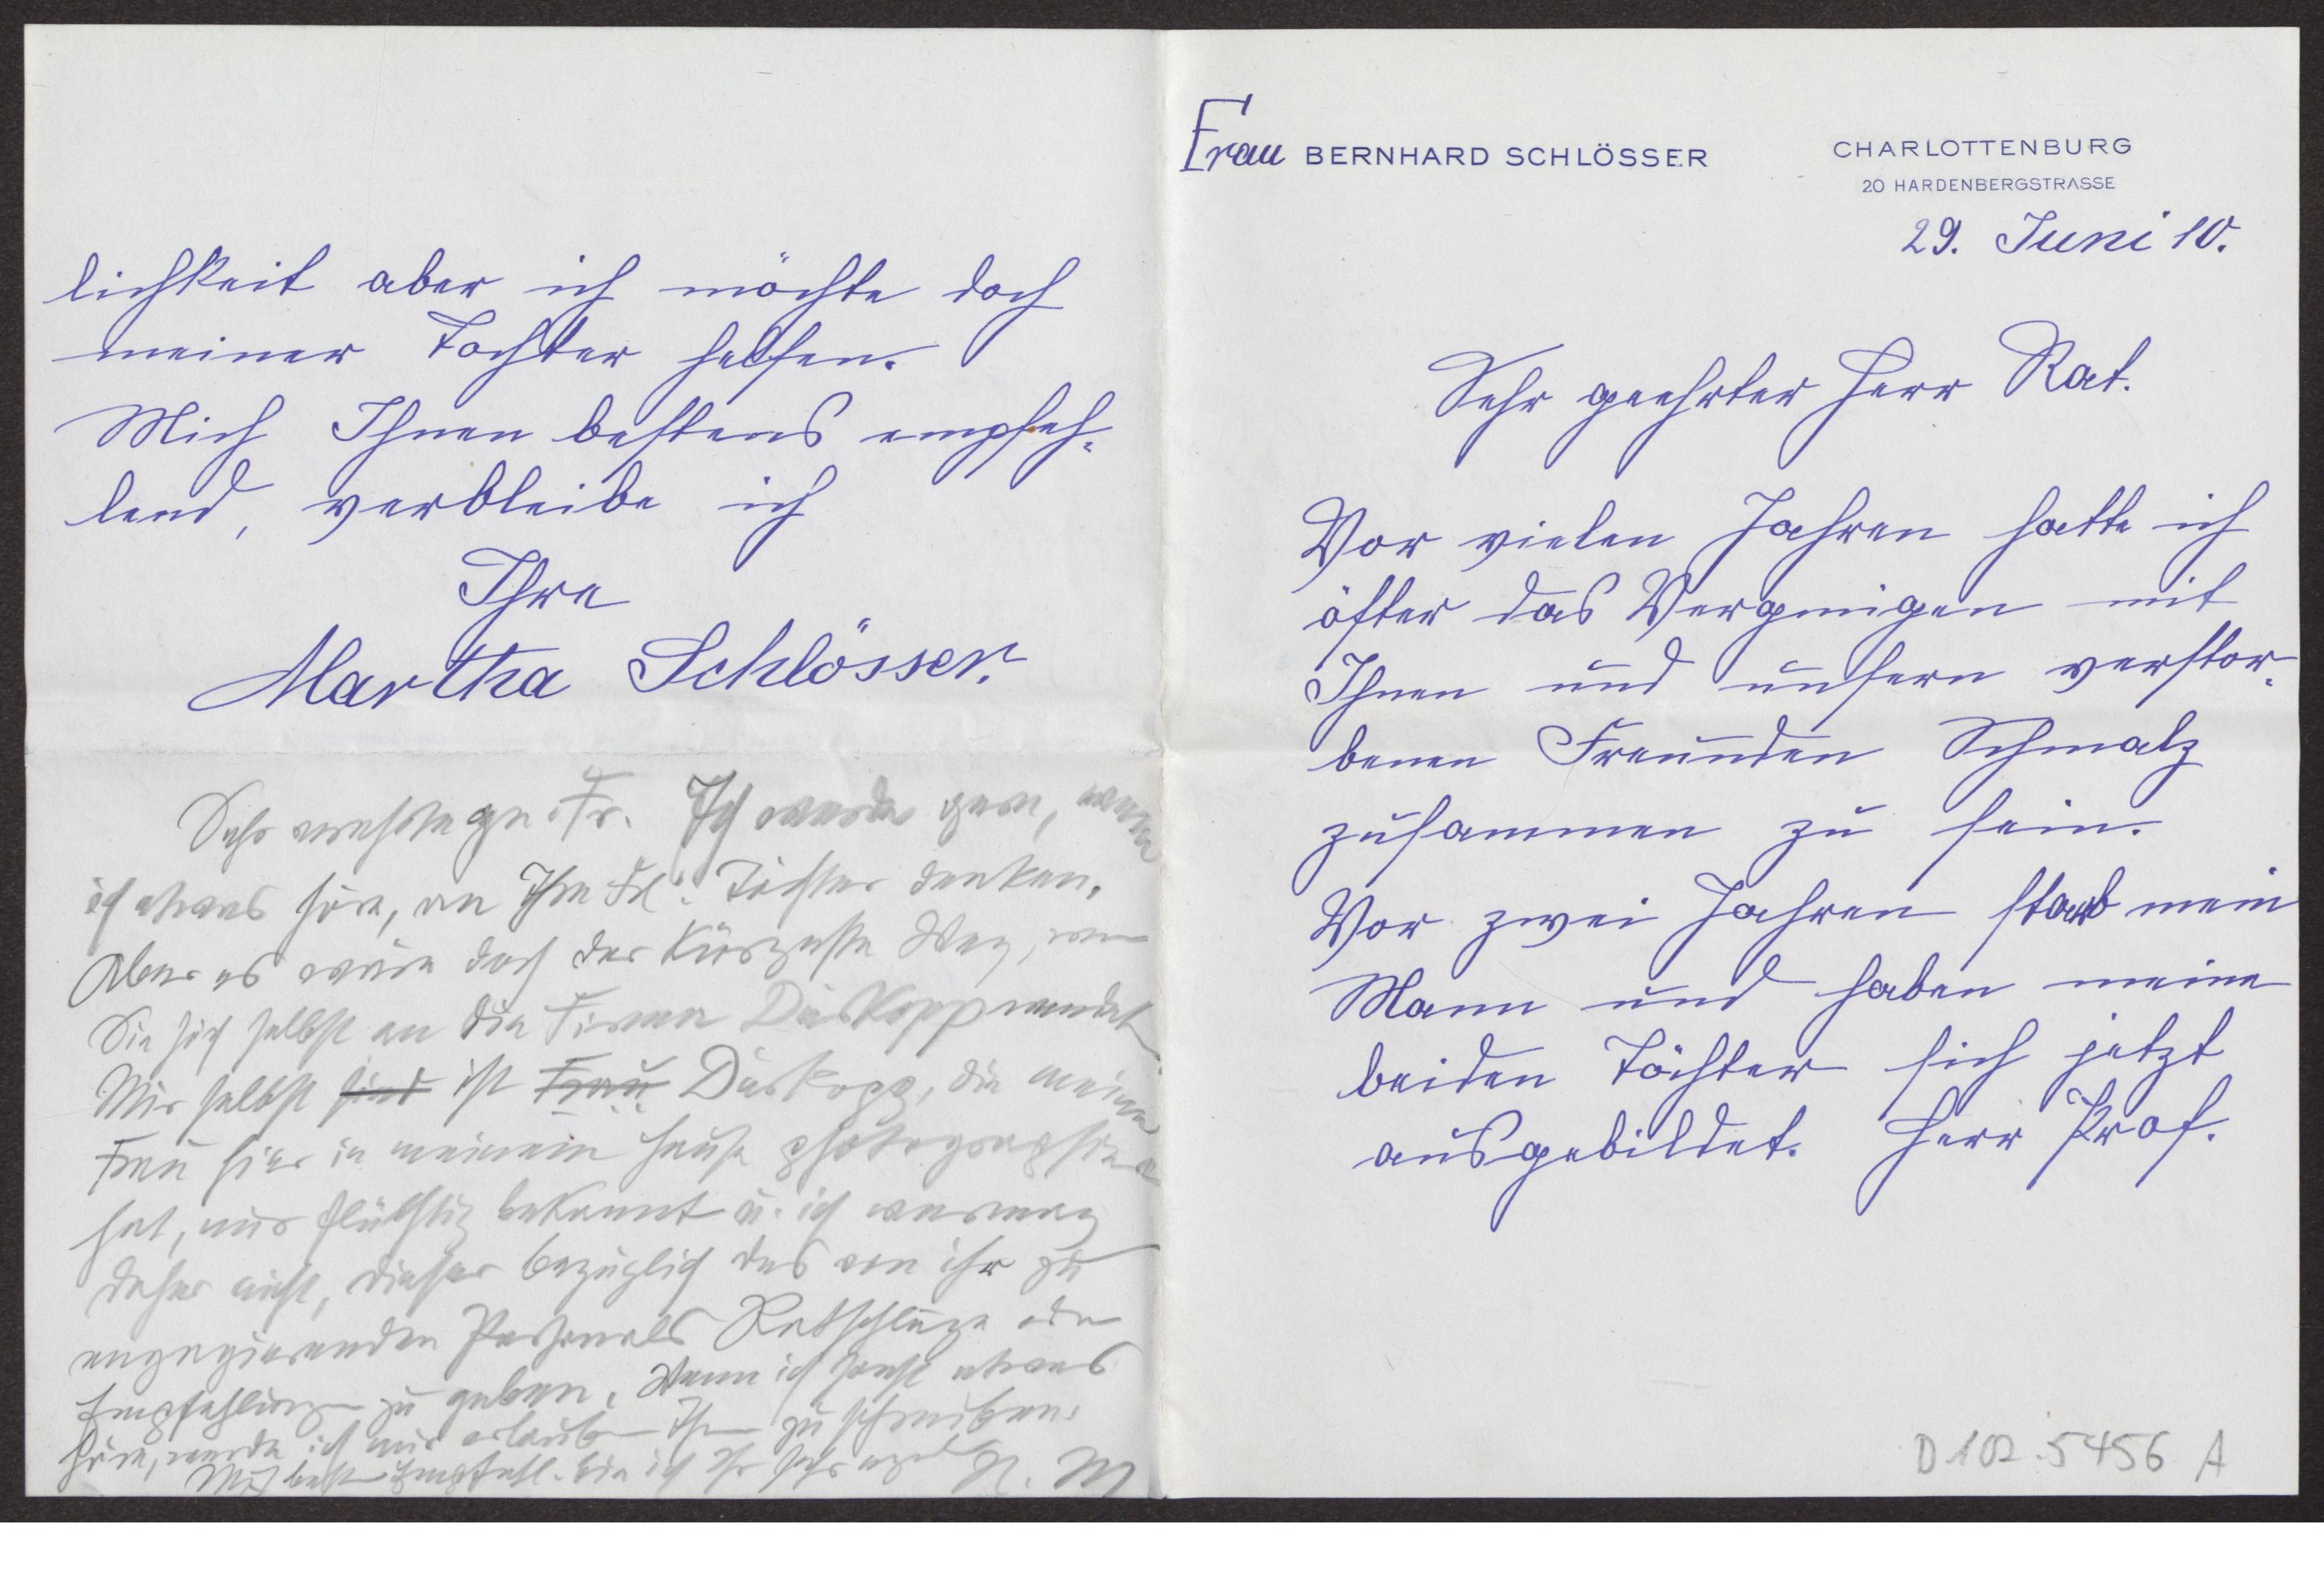 Frau BERNHARD SCHLÖSSER
CHARLOTTENBURG
20 HARDENBERGSTRASSE
29. Juni 10.
Sehr geehrter Herr Rat.
Vor vielen Jahren hatte ich
öfter das Vergnügen mit
Ihnen und unsern verstor-
benen Freunden Schmalz
zusammen zu sein.
Vor zwei Jahren starb mein
Mann und haben meine
beiden Töchter sich jetzt
ausgebildet. Herr Prof.
D 102.5456 A
lichkeit aber ich möchte doch
meiner Tochter helfen.
Mich Ihnen bestens empfeh-
lend, verbleibe ich
Ihre
Martha Schlösser.
Sehr verehrte gn. Fr. Ich werde gern, wenn
ich etwas höre, an Ihre Frl. Tochter denken.
Aber es wäre doch der kürzeste Weg, wenn
Sie sich selbst an die Firma Dührkoop wendet
Mir selbst sind ist Frau Dührkoop, die meine
Frau hier in meinem Hause photographiert
hat, nur flüchtig bekannt u. ich vermag
daher nicht, dieser bezüglich des von ihr zu
engagierenden Personals Ratschläge oder
Empfehlungen zu geben. Wenn ich sonst etwas
höre, werde ich mir erlauben Ihnen zu schreiben.
Mit besten Empfehl. bin ich Ihr sehr erg. H. M